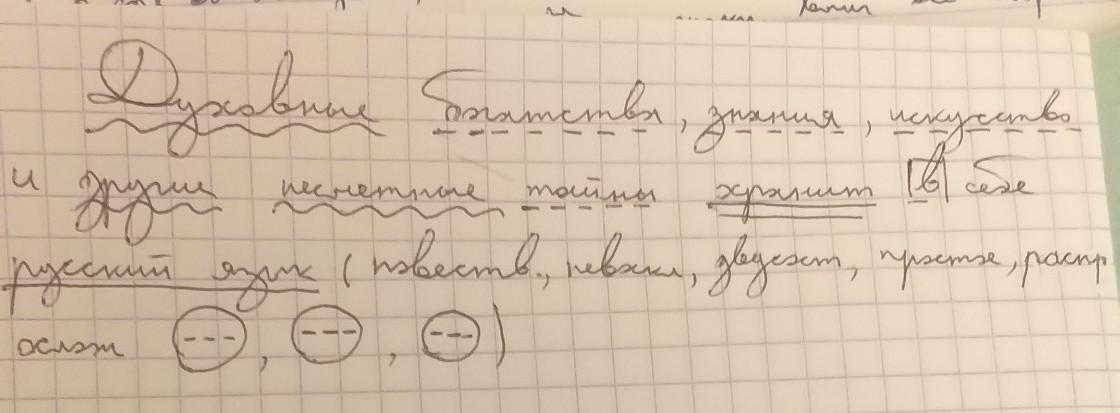 Духовные богатства, знания, искусство
и другие несметные тайны хранит [в] себе
русский язык (повеств., невоскл, двусост, простое, распр
ослож (---), (---), (---))